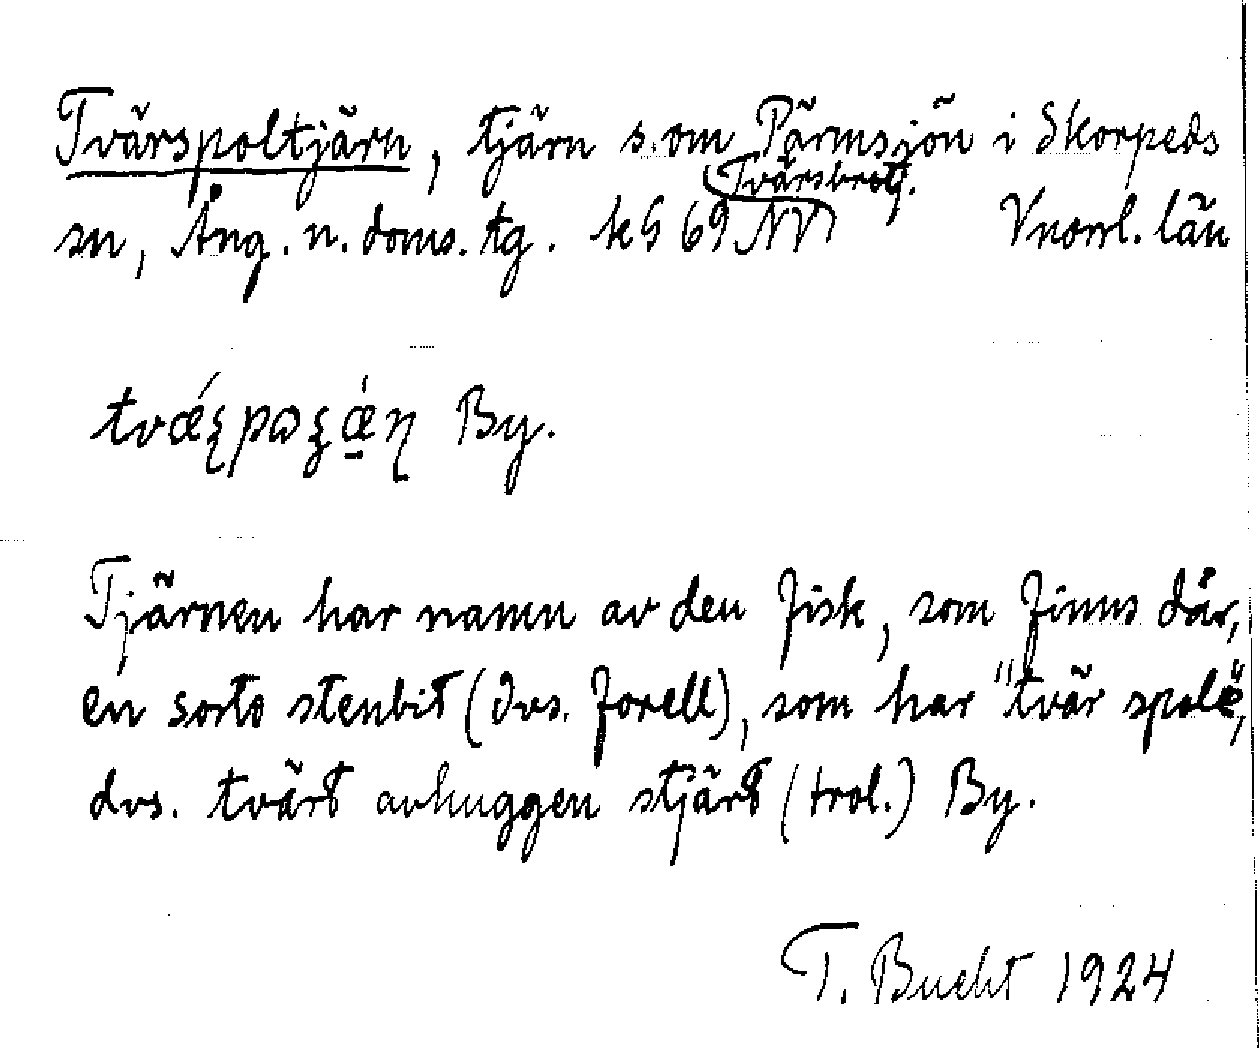 Tvärspoltjärn, tjärn s. om Pärmsjön i Skorpeds
(Tvärsbrotj.
sn, Ång. n. doms. tg. kG 69 NV) Vnorrl. län
By.
Tjärnen har namn av den fisk, som finns där,
en sorts stenbit (dvs. forell), som har "tvär spole",
dvs. tvärt avhuggen stjärt (trol.) By.
T. Bucht 1924